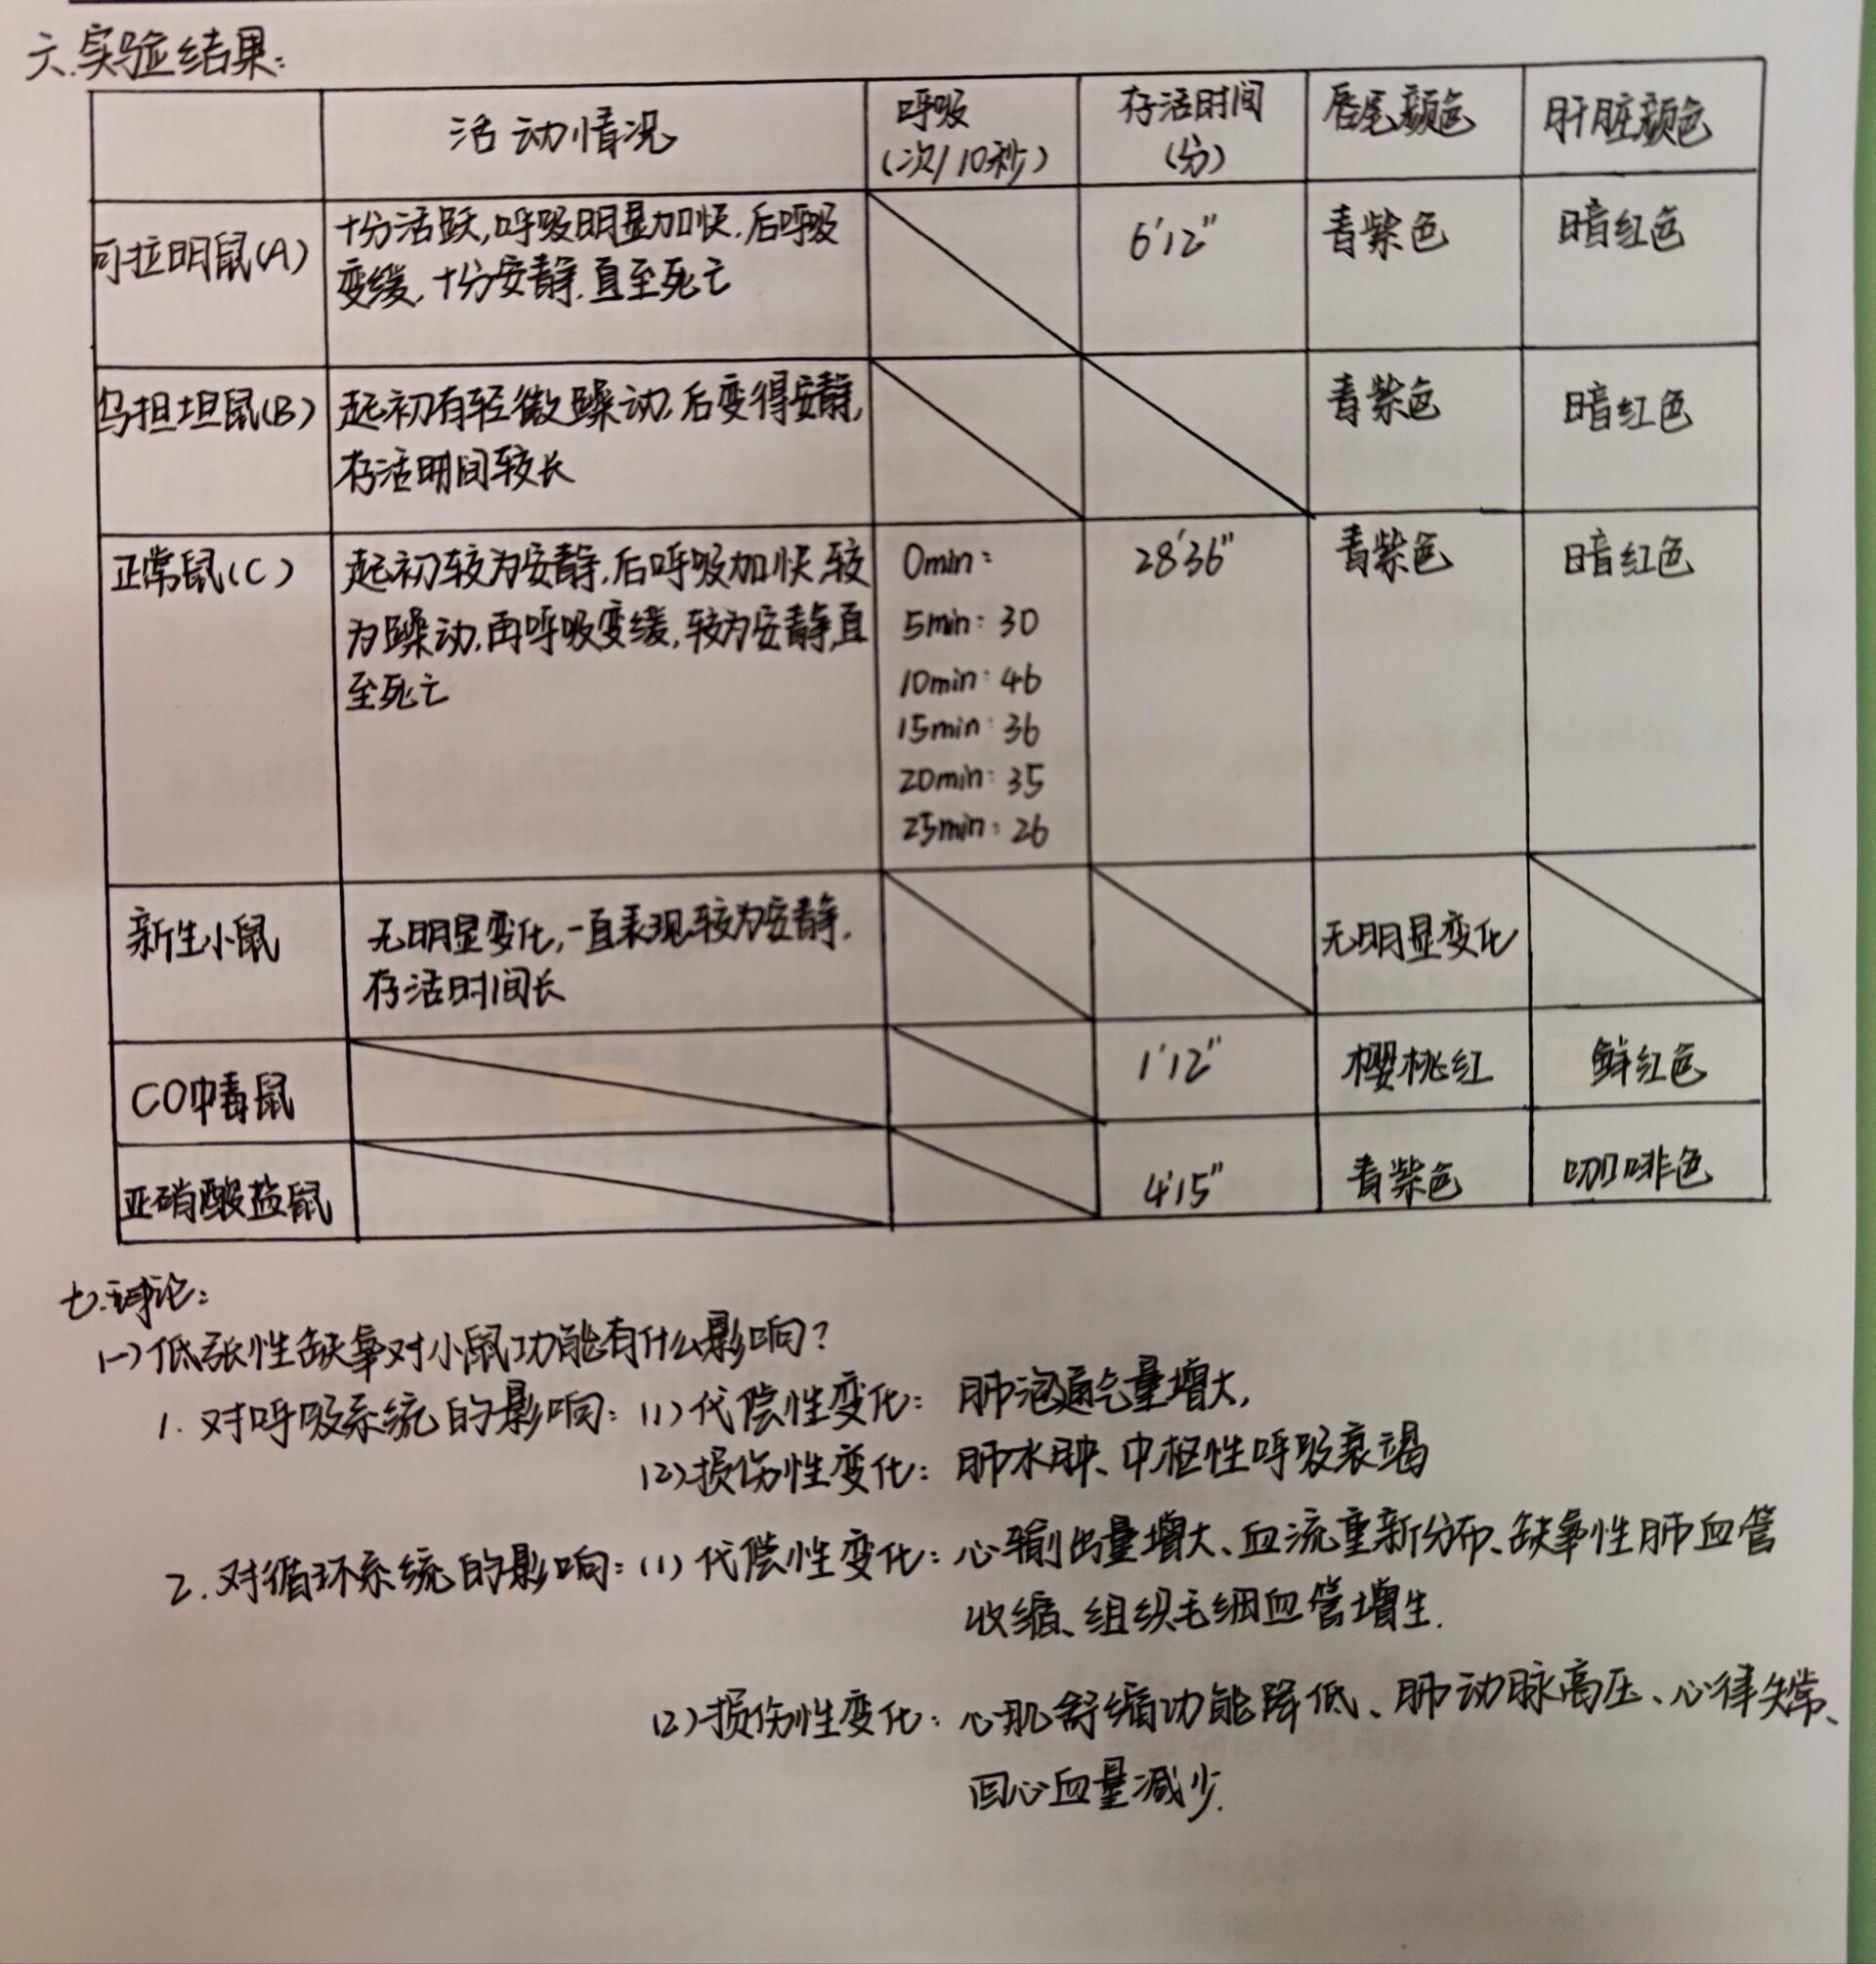 六.实验结果:
活动情况 呼吸(次/10秒) 存活时间(分) 唇尾颜色 肝脏颜色
可拉明鼠(A) 十分活跃,呼吸明显加快,后呼吸 6'12" 青紫色 暗红色
变缓,十分安静,直至死亡
乌担坦鼠(B) 起初有轻微躁动,后变得安静, 青紫色 暗红色
存活时间较长
正常鼠(C) 起初较为安静,后呼吸加快,较 0min: 28'36" 青紫色 暗红色
为躁动,再呼吸变缓,较为安静直 5min: 30
至死亡 10min: 46
15min: 36
20min: 35
25min: 26
新生小鼠 无明显变化,一直表现较为安静. 无明显变化
存活时间长
CO中毒鼠 1'12" 樱桃红 鲜红色
亚硝酸盐鼠 4'15" 青紫色 咖啡色
七.讨论:
(一)低张性缺氧对小鼠功能有什么影响?
1. 对呼吸系统的影响: (1)代偿性变化: 肺泡通气量增大,
(2)损伤性变化: 肺水肿、中枢性呼吸衰竭
2. 对循环系统的影响: (1)代偿性变化: 心输出量增大、血流重新分布、缺氧性肺血管
收缩、组织毛细血管增生.
(2)损伤性变化: 心肌舒缩功能降低、肺动脉高压、心律失常、
回心血量减少.